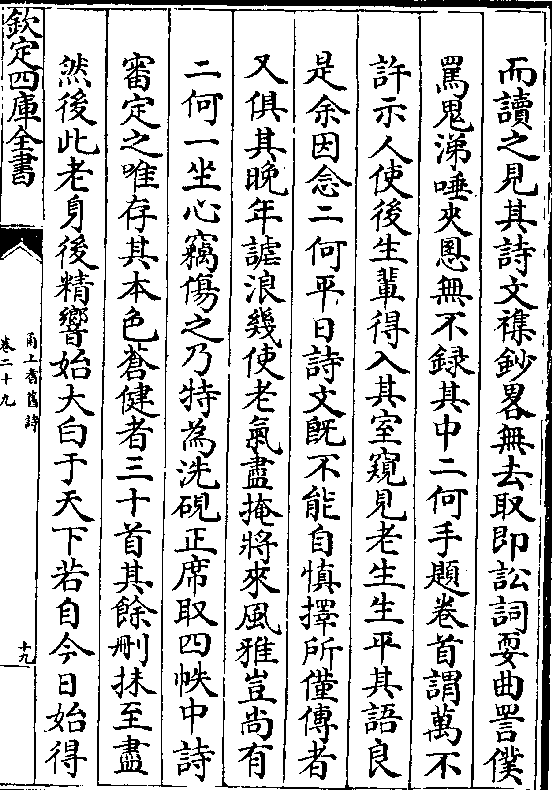 而讀之見其詩文襍鈔畧無去取即訟詞耍曲詈僕
罵鬼涕唾夾恩無不録其中二何手題卷首謂萬不
許示人使後生輩得入其室窺見老生生平其語良
是余因念二何平日詩文旣不能自慎擇所僅傳者
又俱其晚年謔浪幾使老氣盡掩將來風雅豈尚有
二何一坐心竊傷之乃特為洗硯正席取四帙中詩
審定之唯存其本色蒼健者三十首其餘刪抹至盡
然後此老身後精響始大白于天下若自今日始得
欽定四庫全書
甬上耆舊詩
卷二十九
十九